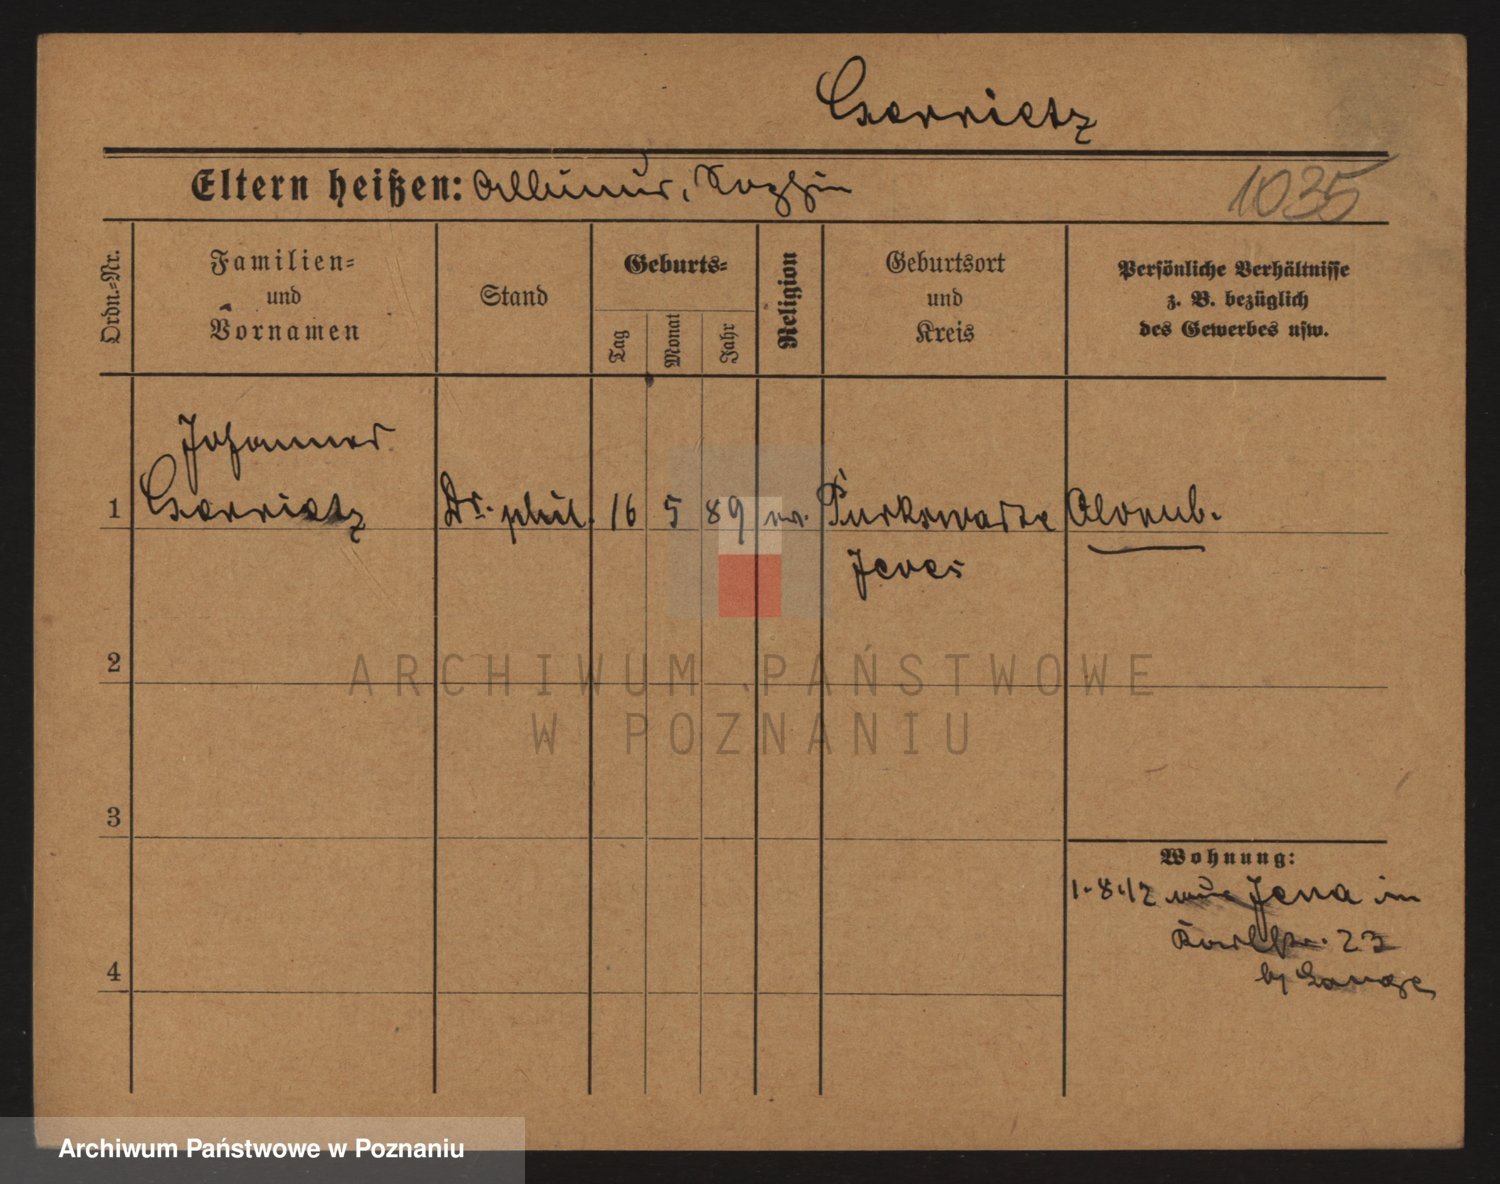 Gerrietz
Eltern heißen:
1035
Ordn.-Nr.
Familien=
und
Vornamen
Stand
Geburts=
Tag
Monat
Jahr
Religion
Geburtsort
und
Kreis
Persönliche Verhältnisse
z. B. bezüglich
des Gewerbes usw.
Johannes
1 Gerrietz Dr. phil. 16 5 89 ev.
Jever
2
3
4
Wohnung:
1.8.12 aus Jena in
Karlstr. 23
b/ Lange
ARCHIWUM PAŃSTWOWE
W POZNANIU
Archiwum Państwowe w Poznaniu